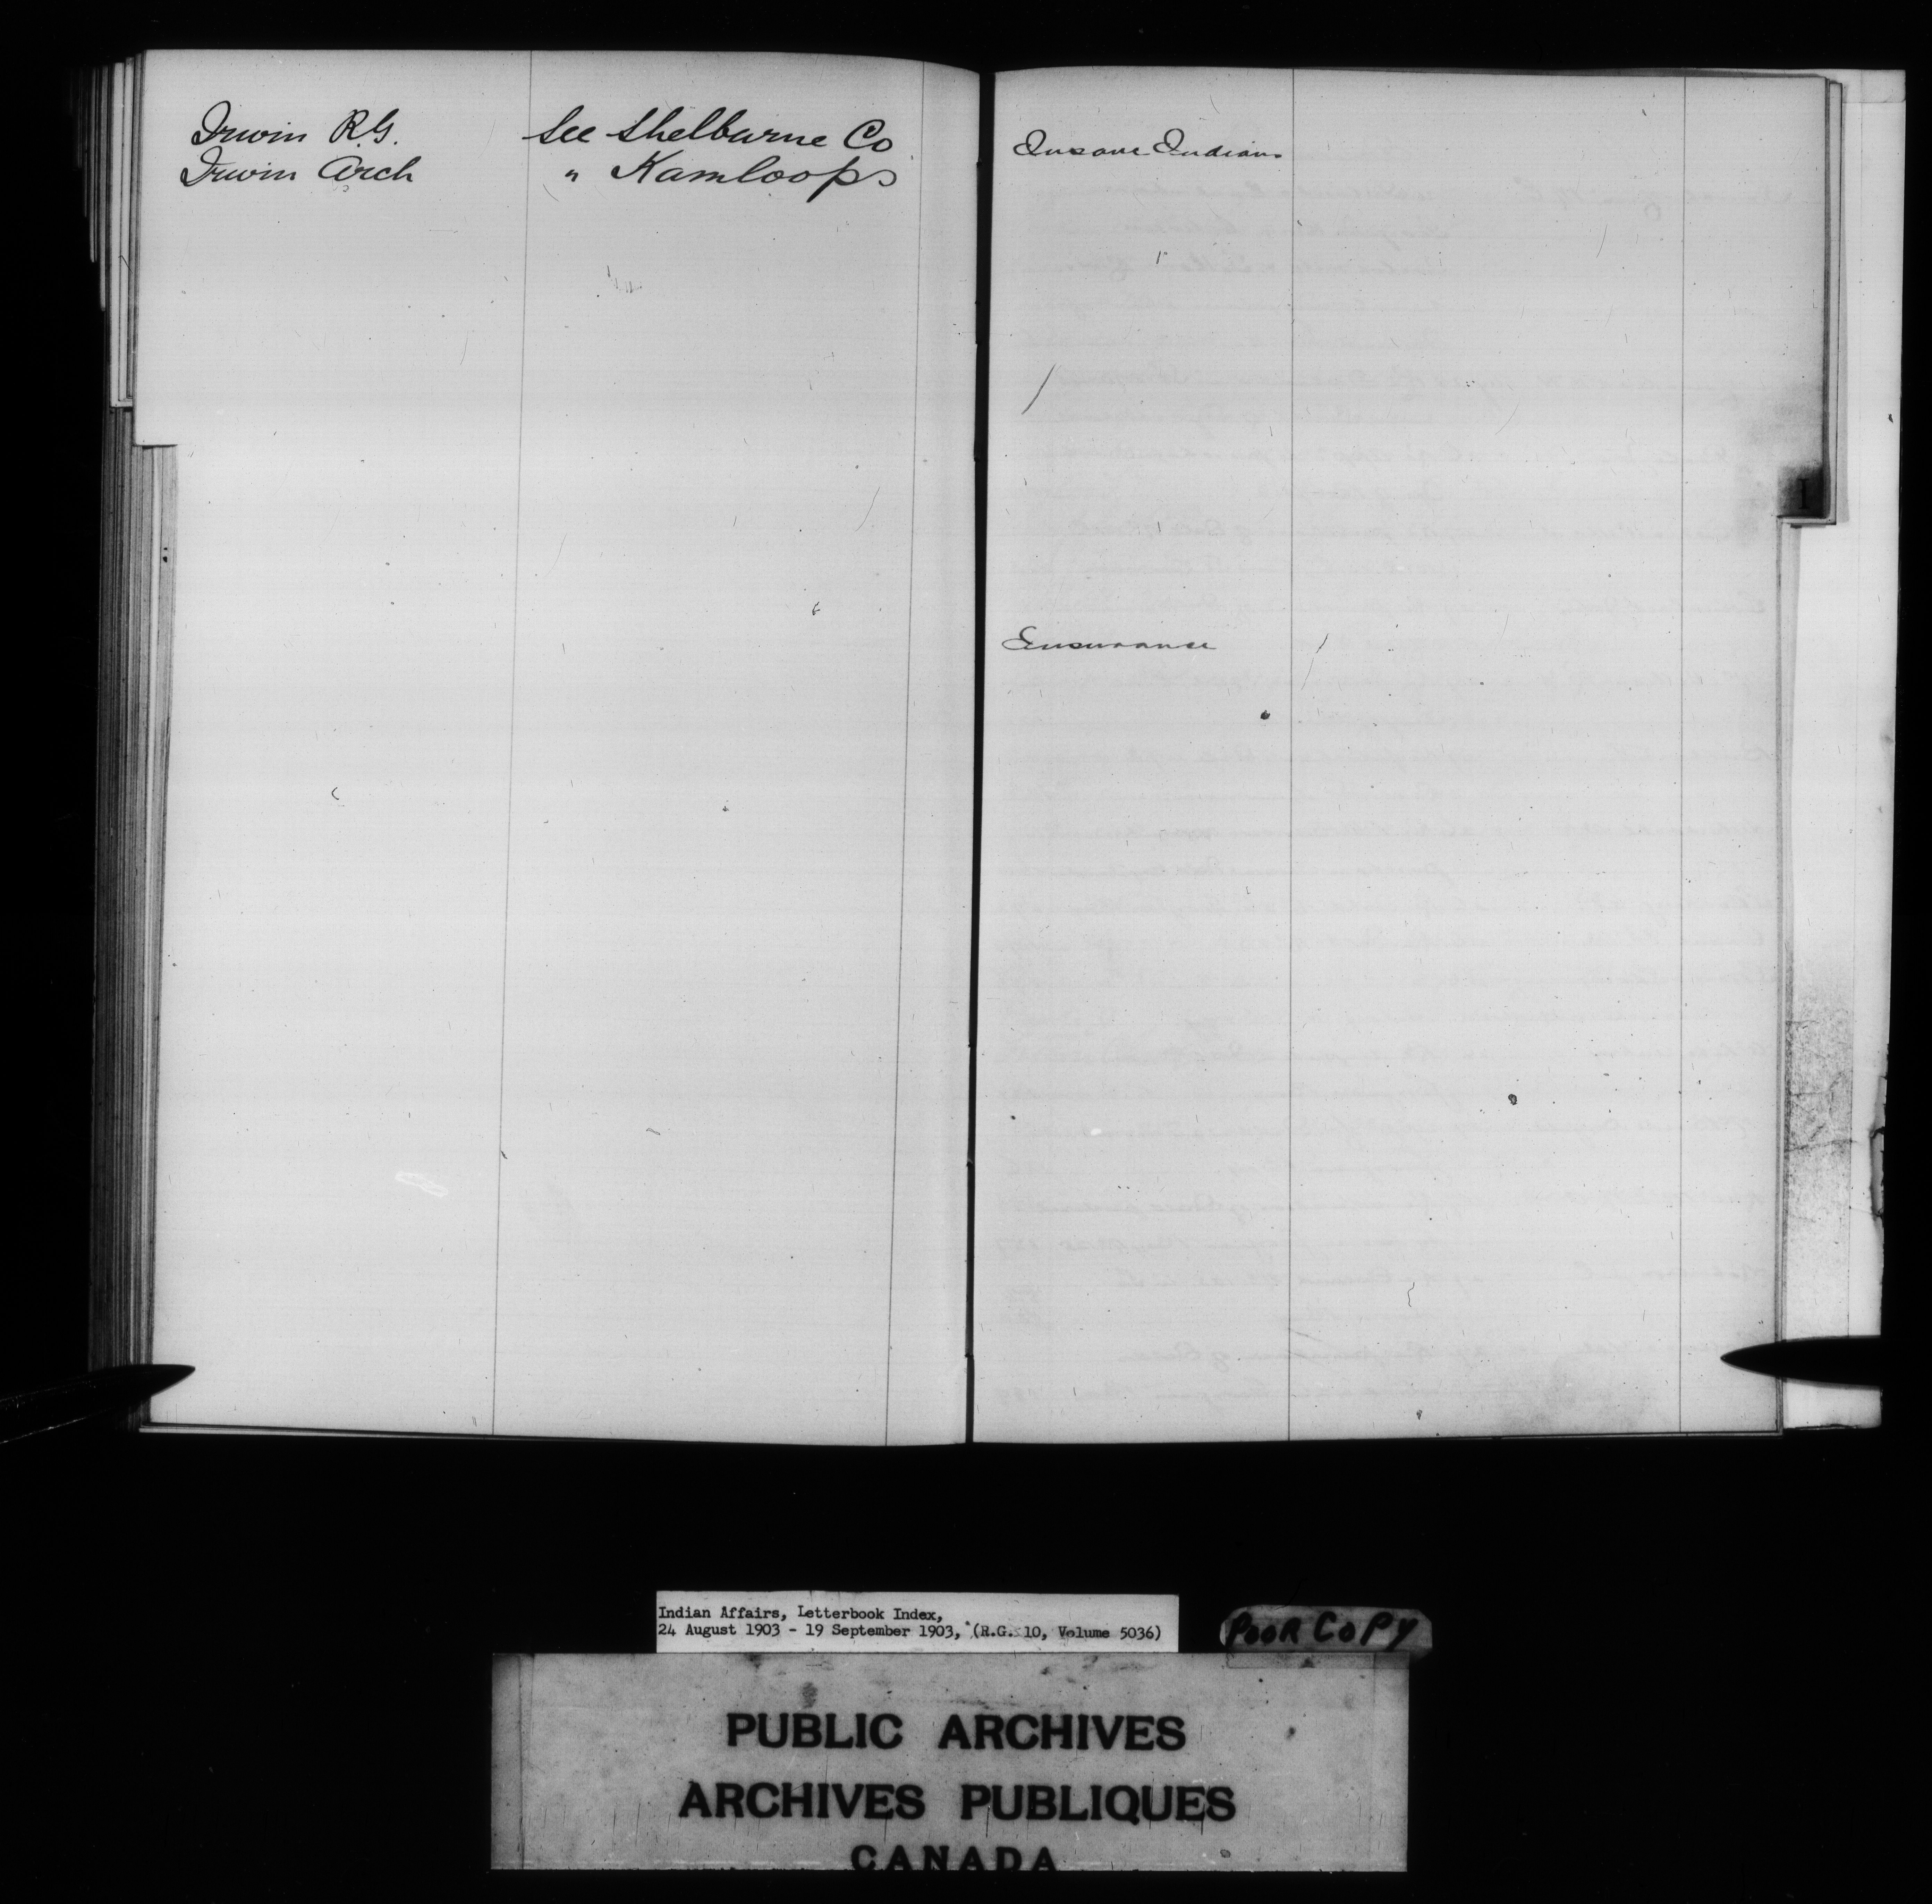 Irwin R.G. See Shelburne Co
Irwin Arch " Kamloops
Insane Indians
Insurance
I
Indian Affairs, Letterbook Index,
24 August 1903 - 19 September 1903, (R.G. 10, Volume 5036)
POOR COPY
PUBLIC ARCHIVES
ARCHIVES PUBLIQUES
CANADA